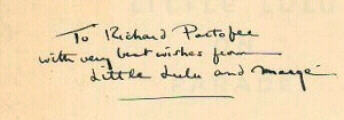 To Richard Partofee
with very best wishes from
Little Lulu and Marge